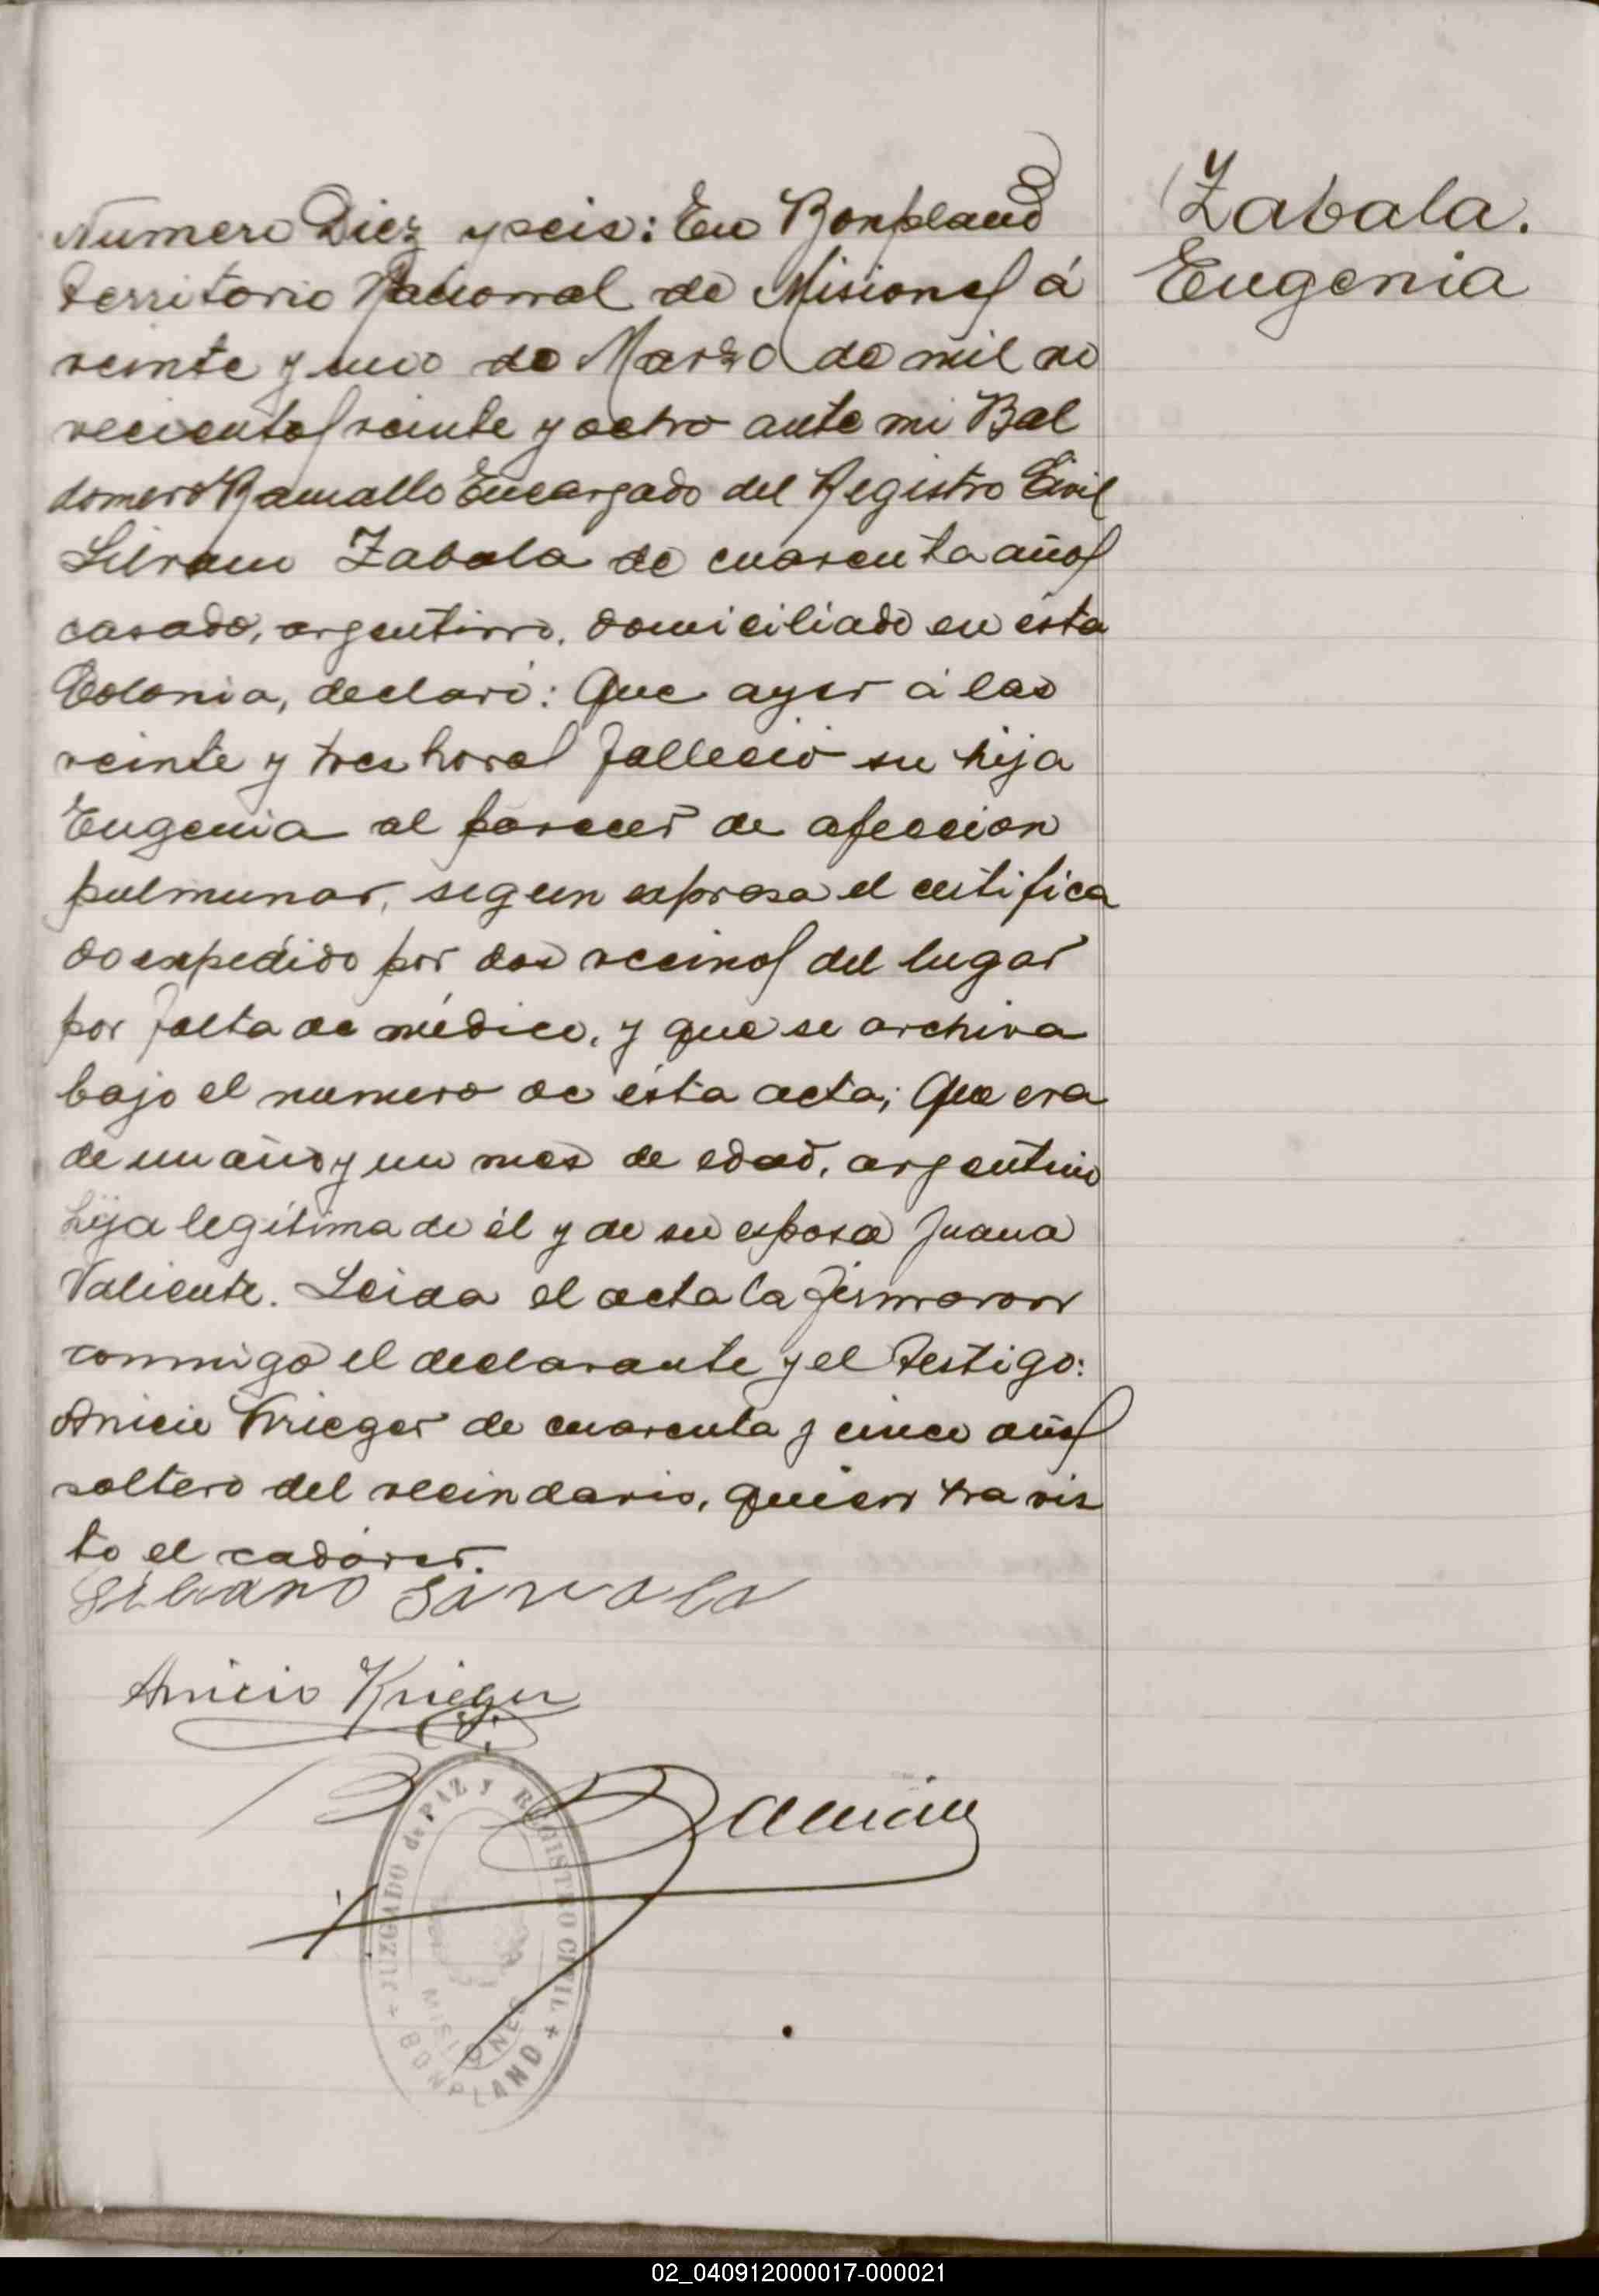 Numero Diez y seis: En Bonpland
Territorio Nacional de Misiones á
veinte y uno de Marzo de mil no
vecientos veinte y ocho ante mi Bal
domero Ramallo Encargado del Registro Civil
Silvano Zabala de cuarenta años
casado, argentino, domiciliado en ésta
Colonia, declaró: Que ayer á las
veinte y tres horas falleció su hija
Eugenia al parecer de afeccion
pulmunar, segun expresa el certifica
do expedido por dos vecinos del lugar
por falta de médico, y que se archiva
bajo el numero de ésta acta; Que era
de un año y un mes de edad, argentino
hija legítima de él y de su esposa Juana
Valiente. Leida el acta la firmaron
conmigo el declarante y el testigo:
Anicio Krieger de cuarenta y cinco años
soltero del vecindario, quien ha vis
to el cadáver.
Silvano
Anicio Krieger
JUZGADO de PAZ y REGISTRO CIVIL
MISIONES
BONPLAND
Zabala.
Eugenia
02_040912000017-000021